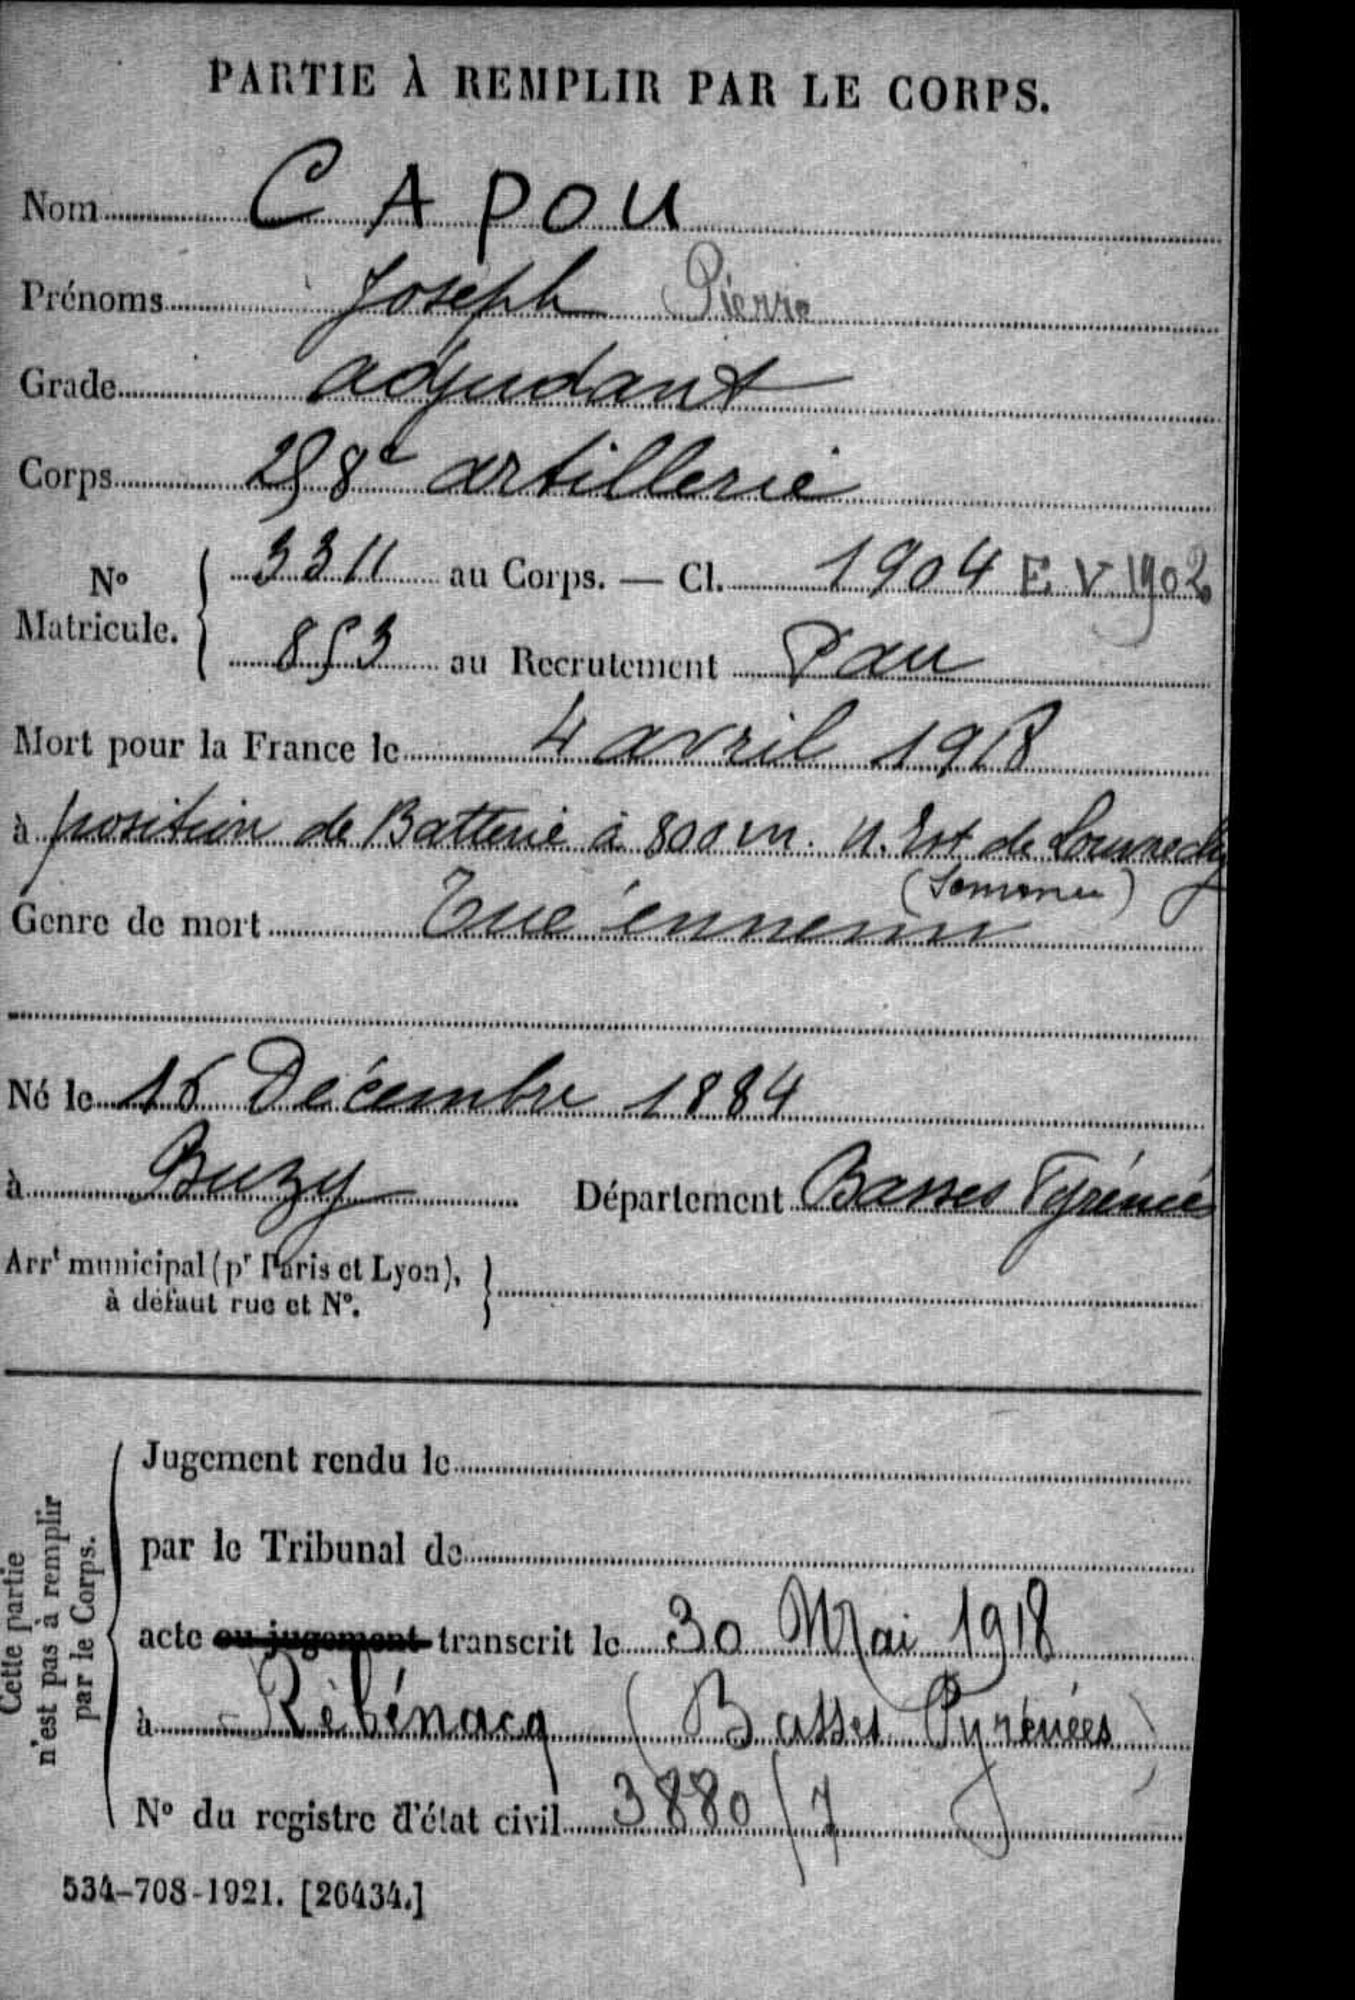 PARTIE À REMPLIR PAR LE CORPS.
Nom CAPOU
Prénoms Joseph Pierre
Grade adjudant
Corps 258e artillerie
No Matricule. 3311 au Corps. — Cl. 1904 E V 1902
853 au Recrutement Pau
Mort pour la France le 4 avril 1918
à position de Batterie à 800 m. N. Est de
(Somme)
Genre de mort Tué ennemi
Né le 16 Décembre 1884
à Buzy Département Basses Pyrénées
Arrt municipal (pr Paris et Lyon),
à défaut rue et No.
Cette partie n'est pas à remplir par le Corps.
Jugement rendu le
par le Tribunal de
acte ou jugement transcrit le 30 Mai 1918
à Rébénacq (Basses Pyrénées)
No du registre d'état civil 3880/7
534-708-1921. [26434.]